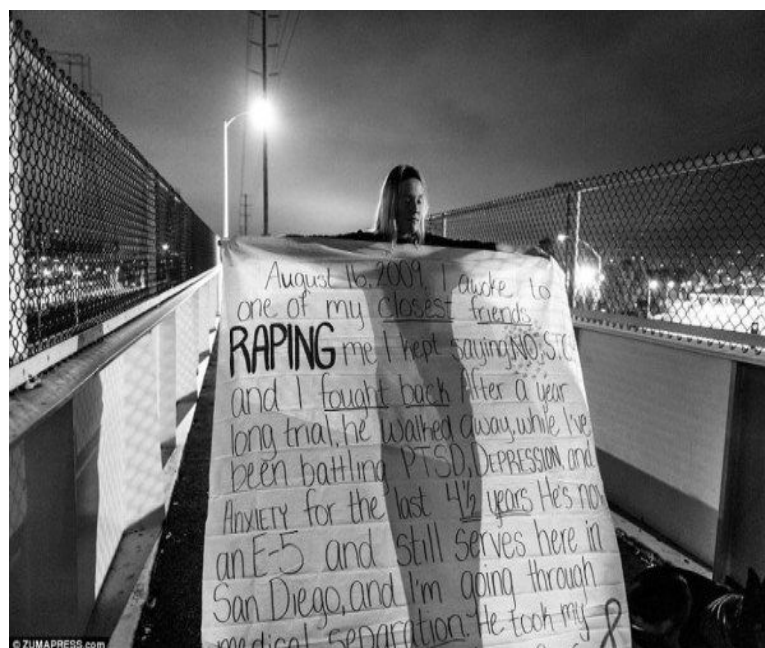 August 16, 2009, I awoke to
one of my closest friends
RAPING me I kept saying NO, S
and I fought back After a year
long trial, he walked away, while I've
been battling PTSD, DEPRESSION, and
ANXIETY for the last 4½ years He's now
an E-5 and still serves here in
San Diego, and I'm going through
medical separation. He took my
© ZUMAPRESS.com